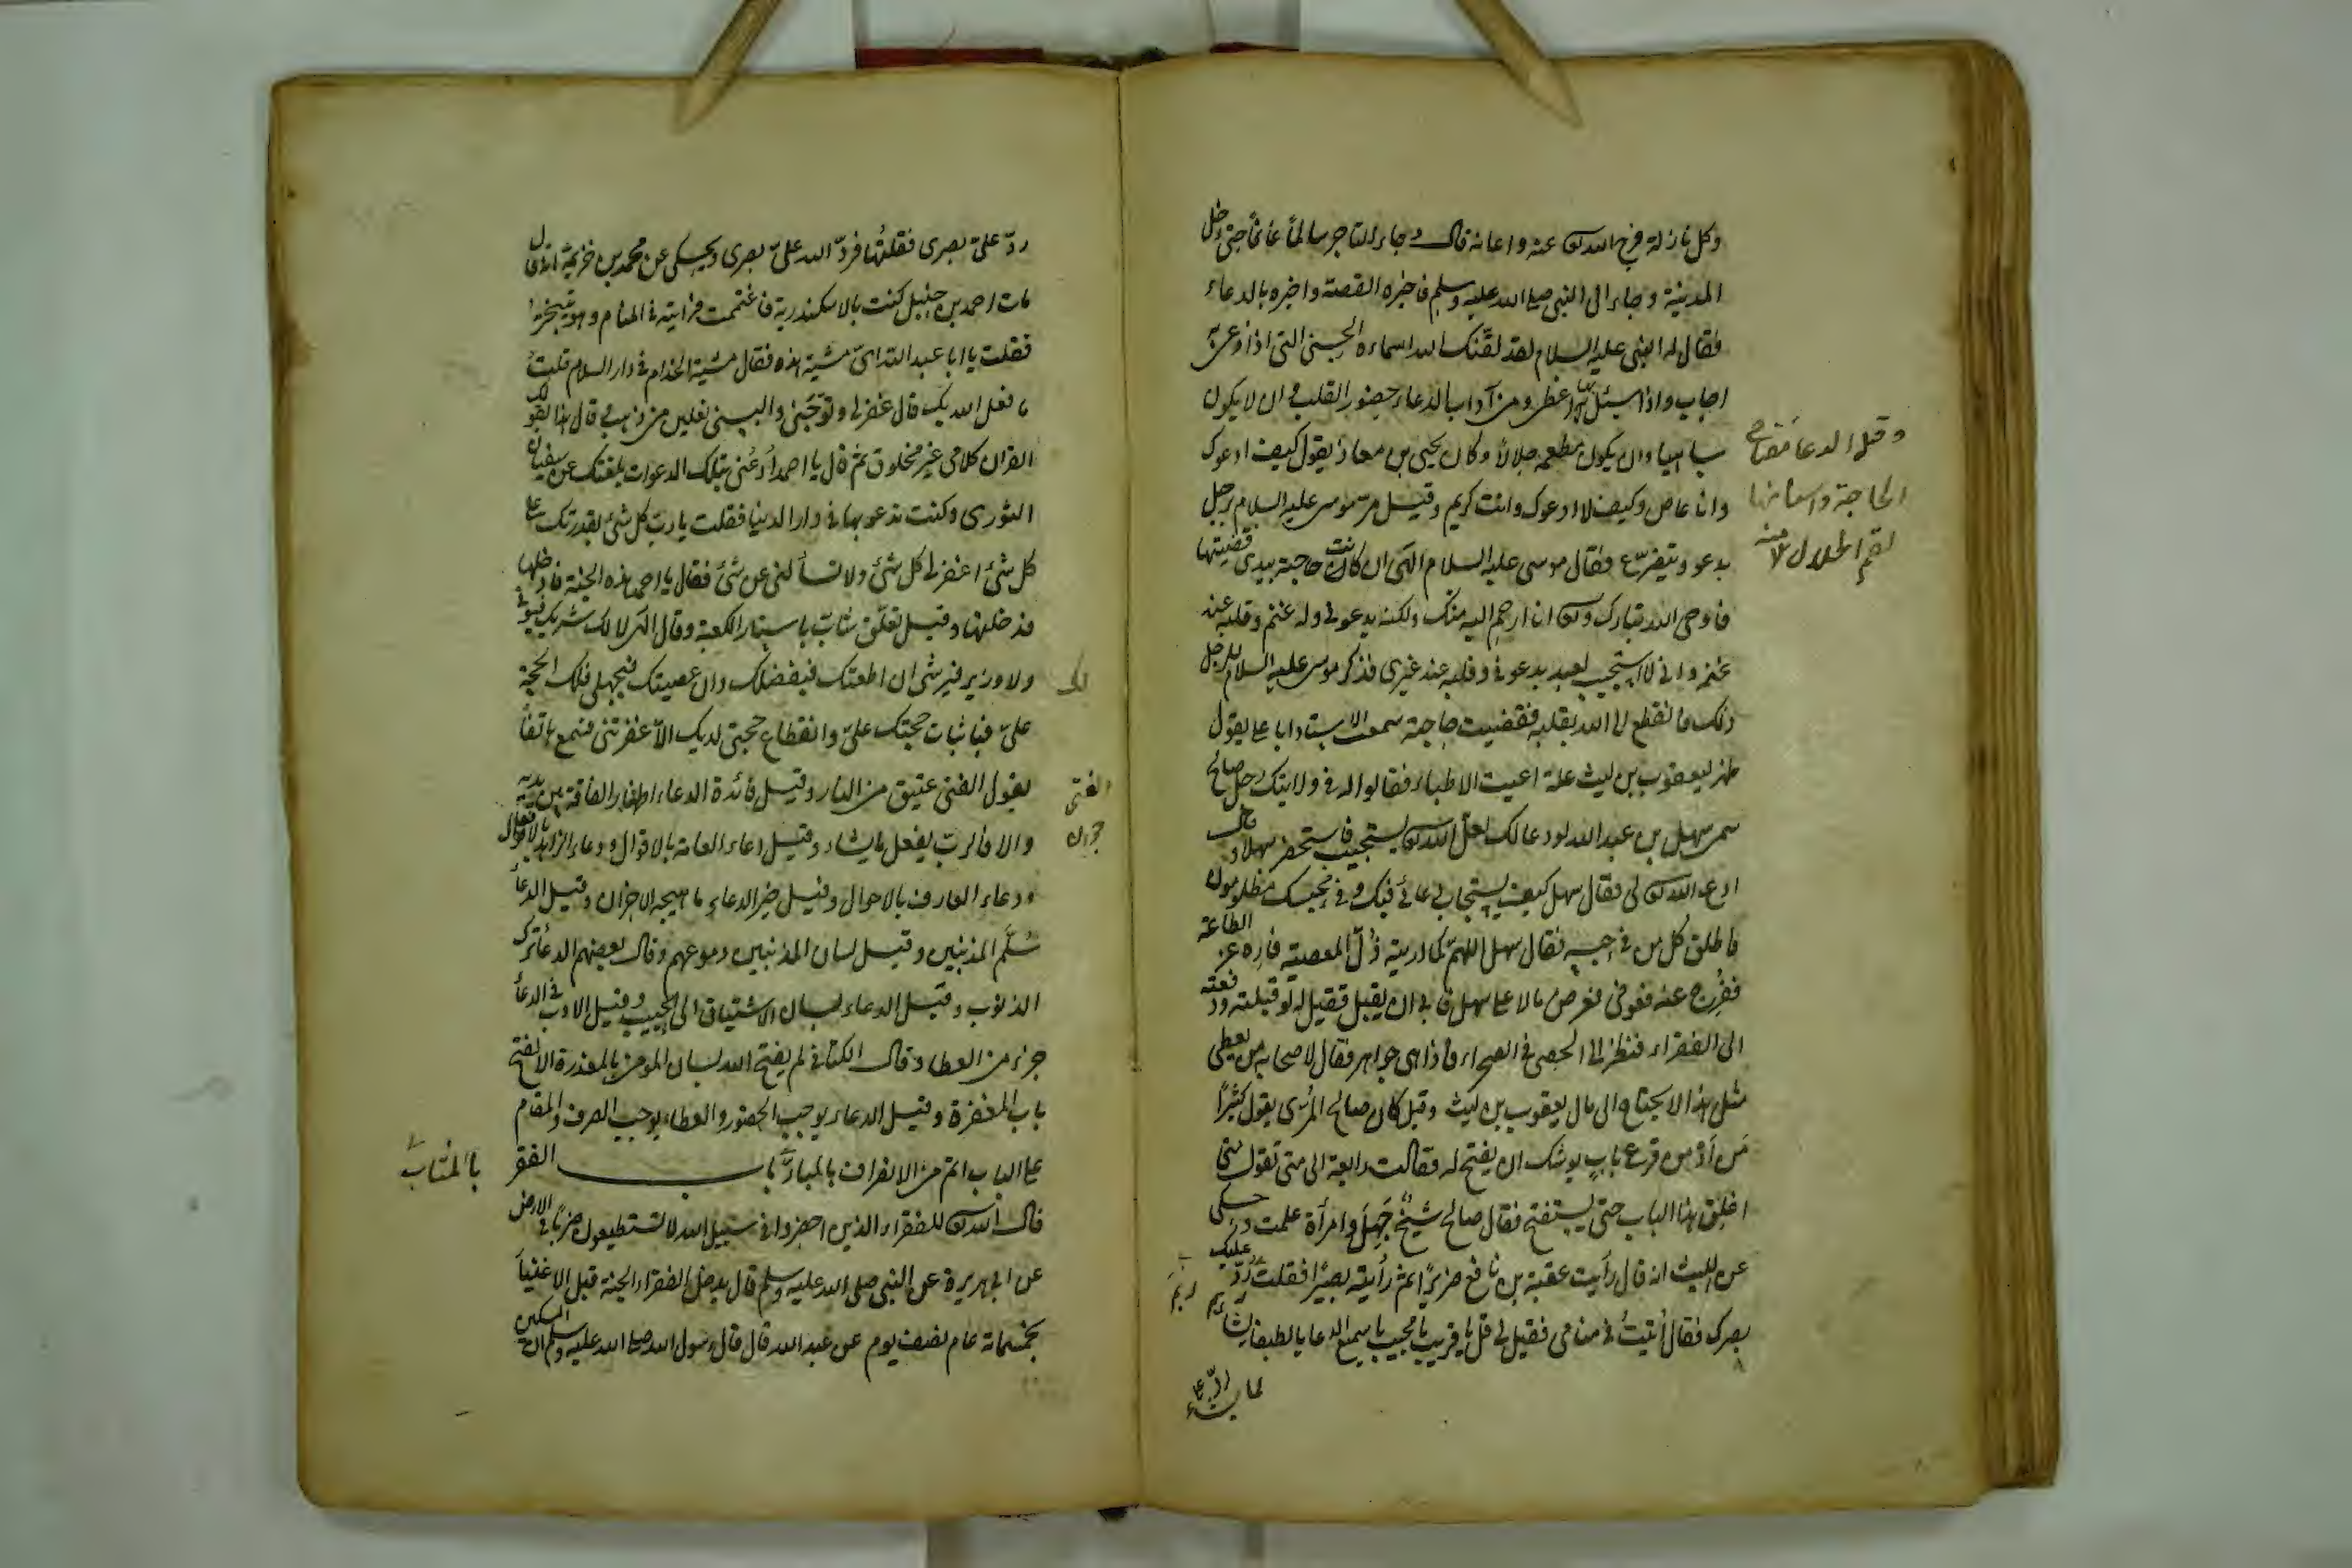 وكل نازلة فرج الله تعالى عنه واعانه قال وجاء التاجر سالماً غانماً حتى دخل
المدينة وجاء الى النبي صلى الله عليه وسلم فاخبره القصة واخبره بالدعاء
فقال له النبي عليه السلام لقد لقنك الله اسماءه الحسنى التي اذا دعي بها
اجاب واذا سئل بها اعطى ومن آداب الدعاء حضور القلب في ان لا يكون
ساهيا وان يكون مطعمه حلالا وكان يحيى بن معاذ يقول كيف ادعوك
وقيل الدعا مفتاح
الحاجة واسنانها
لقم الحلال
وانا عاص وكيف لا ادعوك وانت كريم وقيل مر موسى عليه السلام برجل
يدعو ويتضرع فقال موسى عليه السلام الهى ان كانت حاجته بيدي قضيتها
فاوحى الله تبارك وتعالى انا ارحم اليه منك ولكنه يدعوني وله غنم وقلبه عند
غنمه واني لا استجيب لعبد يدعوني وقلبه عند غيري فذكر موسى عليه السلام للرجل
ذلك فانقطع الى الله بقلبه فقضيت حاجته سمعت الاستاد ابا على يقول
ظهر ليعقوب بن ليث علة اعيت الاطباء فقالوا له في ولايتك رجل صالح
سمى سهل بن عبد الله لو دعا لك لعل الله تعالى يستجيب فاستحضر سهلا وقال
ادع الله تعالى لي فقال سهل كيف يستجاب دعائي فيك وفي محبسك مظلومون
فاطلق كل من في حبسه فقال سهل اللهم كما اريته ذل المعصية فاره عز الطاعة
ففرج عنه فعوفى فعرض مالا على سهل فابى ان يقبل فقيل له لو قبلته ودفعته
الى الفقراء فنظر الى الحصى في الصحراء فاذا هي جواهر فقال لاصحابه من يعطى
مثل هذا لا يحتاج الى مال يعقوب بن ليث وقيل كان صالح المري يقول كثيرًا
من أدمن قرع باب يوشك ان يفتح له فقالت رابعة الى متى تقول متى
اغلق هذا الباب حتى يستفتح فقال صالح شيخ جهل وامرأة علمت وحكى
عن الليث انه قال رأيت عقبة بن نافع ضريرًا ثم رأيته بصيرًا فقلت بم رد عليك
بصرك فقال أتيت في منامي فقيل لي قل يا قريب يا مجيب يا سميع الدعا يا لطيفا
لما يشاء
رد على بصرى فقلتها فرد الله على بصرى ويحكى عن محمد بن خزيمة انه قال
مات احمد بن حنبل كنت بالاسكندرية فاغتممت فرايته في المنام وهو يتبختر
فقلت يا ابا عبد الله اى مشية هذه فقال مشية الخدام في دار السلام قلت
ما فعل الله بك قال غفر لي وتوجني والبسني نعلين من ذهب قال هذا بقولك
القران كلامى غير مخلوق ثم قال يا احمد أدعني بتلك الدعوات بلغتك عن سفيان
الثورى وكنت تدعو بها في دار الدنيا فقلت يا رب كل شئ بقدرتك على
كل شئ اغفر لي كل شئ ولا تسألني عن شئ فقال يا احمد هذه الجنة فادخلها
فدخلتها وقيل تعلق شاب باستار الكعبة وقال الهى لا لك شريك فيؤتى
ولا وزير فيرشى ان اطعتك فبفضلك وان عصيتك فبجهلى فلك الحجة
لك
علىّ فباثبات حجتك علىّ وانقطاع حجتي لديك الا غفرتني فسمع هاتفا
يقول الفتى عتيق من النار وقيل فائدة الدعاء اظهار الفاقة بين يديه
الفتى
والا فالرب يفعل ما يشاء وقيل دعاء العامة بالاقوال ودعاء الزاهد بالافعال
ودعاء العارف بالاحوال وقيل خير الدعاء ما هيجه الاحزان وقيل الدعا
سلم المذنبين وقيل لسان المذنبين دموعهم وقال بعضهم الدعا ترك
الذنوب وقيل الدعاء لسان الاشتياق الى الحبيب وقيل الاذن في الدعا
خير من العطاء وقال الكتاني لم يفتح الله لسان المؤمن بالمعذرة الا لفتح
باب المغفرة وقيل الدعاء يوجب الحضور والعطاء يوجب الصرف والمقام
على الباب اتم من الانصراف بالمبار باب الفقر
بالمثاب
قال الله تعالى للفقراء الذين احصروا في سبيل الله لا يستطيعون ضربا في الارض
عن ابي هريرة عن النبي صلى الله عليه وسلم قال يدخل الفقراء الجنة قبل الاغنيا
بخمسمائة عام نصف يوم عن عبد الله قال قال رسول الله صلى الله عليه وسلم ان المسكين